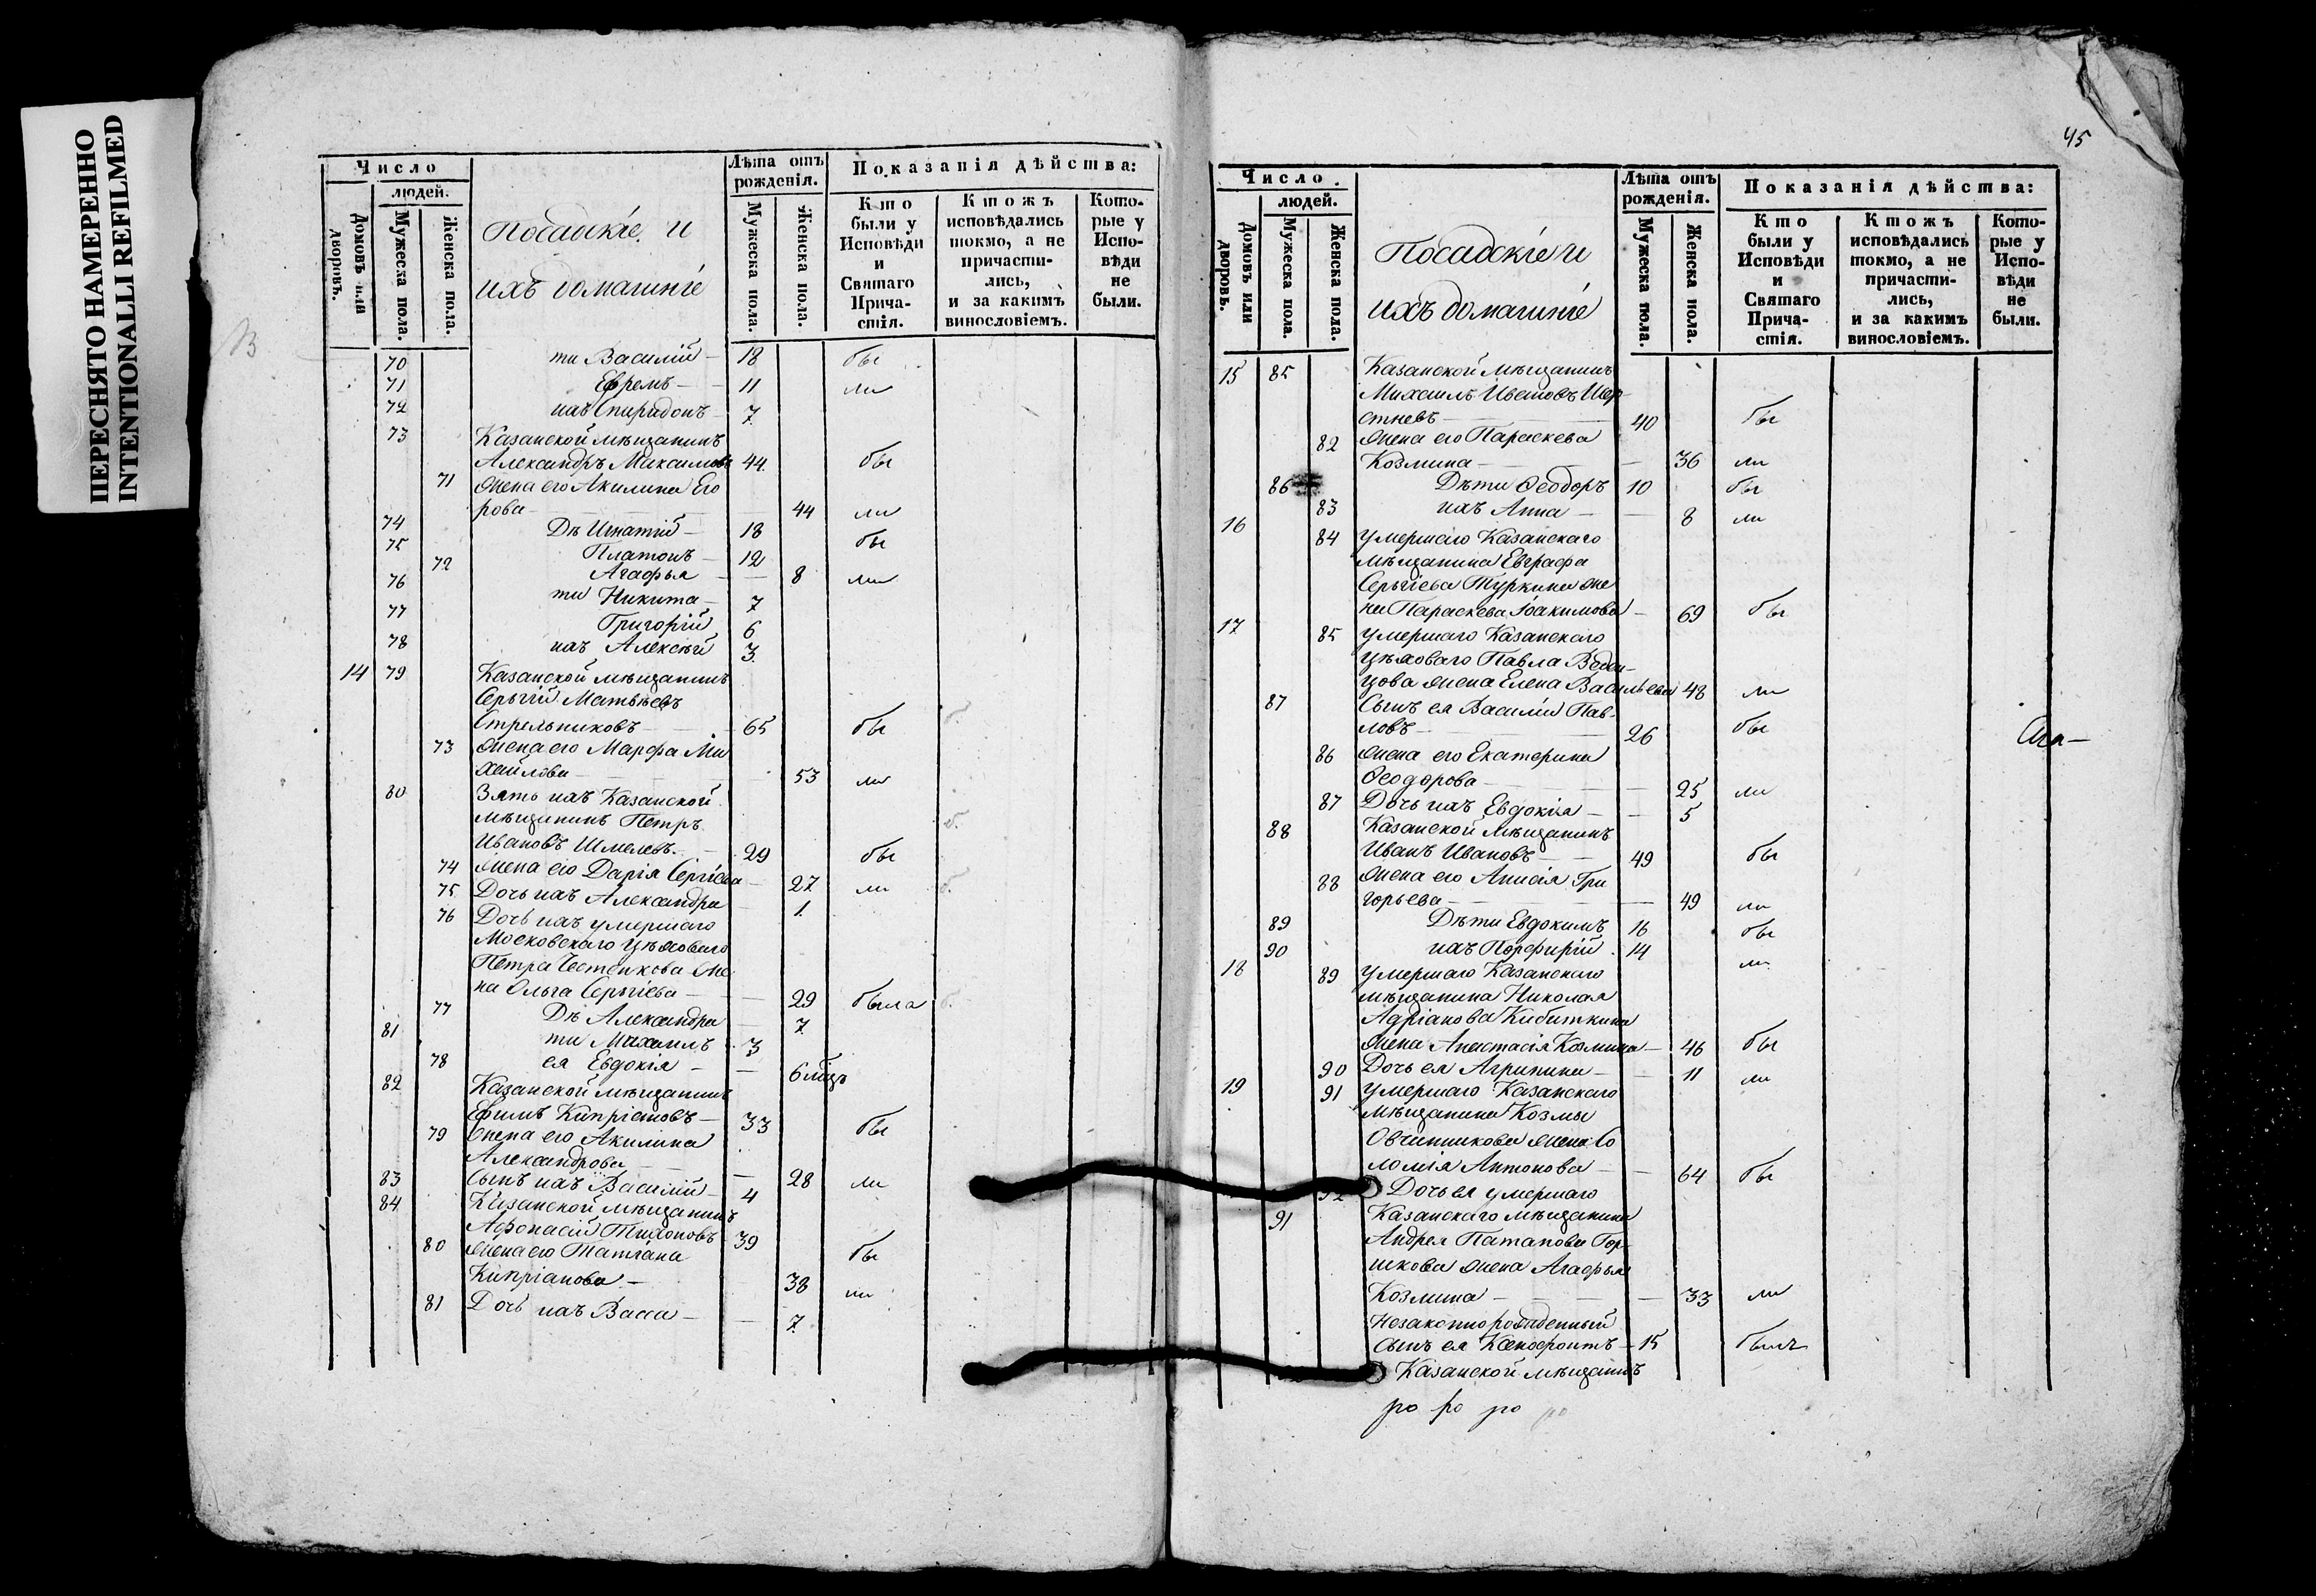 ПЕРЕСНЯТО НАМЕРЕННО
INTENTIONALLI REFILMED
Число
людей.
Домовъ или дворовъ.
Мужеска пола.
Женска пола.
Посадскіе и
ихъ домашніе
Лѣта отъ рожденія.
Мужеска пола.
Женска пола.
Показанія дѣйства:
Кто были у Исповѣди и Святаго Прича-стія.
Ктожъ исповѣдались токмо, а не причасти-лись, и за какимъ винословіемъ.
Кото-рые у Испо-вѣди не были.
70 ти Василій 18 бы
71 Ефремъ 11 ли
72 ихъ Спиридонъ 7
73 Казанской мѣщанинъ
Александръ Максимовъ 44 бы
71 жена его Акилина Его
рова 44 ли
74 Дѣ Игнатій 18 бы
75 Платонъ 12
72 Агафья 8 ли
76 ти Никита 7
77 Григорій 6
78 ихъ Алексѣй 3
14 79 Казанской мѣщанинъ
Сергій Матвѣевъ
Стрельниковъ 65 бы
73 жена его Марфа Ми
хайлова 53 ли
80 Зять ихъ Казанской
мѣщанинъ Петръ
Ивановъ Шмелевъ 29 бы
74 жена его Дарія Сергіева 27 ли
75 Дочь ихъ Александра 1
76 Дочь ихъ умершаго
Московскаго цѣховаго
Петра же
на Ольга Сергіева 29 была
77 Дѣ Александра 7
81 ти Михаилъ 3
78 ея Евдокія 6 мѣцъ
82 Казанской мѣщанинъ
Ефимъ Кипріановъ 33 бы
79 жена его Акилина
Александрова 28 ли
83 Сынъ ихъ Василій 4
84 Казанской мѣщанинъ
Афонасій Тихоновъ 39 бы
80 жена его Татіана
Кипріанова 38 ли
81 Дочь ихъ Васса 7
45
Число
людей.
Домовъ или дворовъ.
Мужеска пола.
Женска пола.
Посадскіе и
ихъ домашніе
Лѣта отъ рожденія.
Мужеска пола.
Женска пола.
Показанія дѣйства:
Кто были у Исповѣди и Святаго Прича-стія.
Ктожъ исповѣдались токмо, а не причасти-лись, и за какимъ винословіемъ.
Кото-рые у Испо-вѣди не были.
15 85 Казанской мѣщанинъ
Михаилъ Ивановъ Шер
стневъ 40 бы
82 жена его Параскева
Козмина 36 ли
86 Дѣти Ѳеодоръ 10 бы
83 ихъ Анна 8 ли
16 84 умершаго Казанскаго
мѣщанина Евграфа
Сергіева Туркина же
на Параскева Іоакимова 69 бы
17 85 умершаго Казанскаго
цѣховаго Павла
жена Елена Васильева 48 ли
87 Сынъ ея Василій Пав-
ловъ 26 бы
86 жена его Екатерина
Ѳеодорова 25 ли
87 Дочь ихъ Евдокія 5
88 Казанской мѣщанинъ
Иванъ Ивановъ 49 бы
88 жена его Анисія Гри
горьева 49 ли
89 Дѣти Евдокимъ 16 бы
90 ихъ Порфирій 14 ли
18 89 умершаго Казанскаго
мѣщанина Николая
Адріанова Кибиткина
жена Анастасія Козмина 46 бы
90 Дочь ея Агрипина 11 ли
19 91 умершаго Казанскаго
мѣщанина Козмы
Овчинникова жена Со
ломія Антонова 64 бы
92 Дочь ея умершаго
91 Казанскаго мѣщанина
Андрея Патапова Гор
шкова жена Агафья
Козмина 33 ли
Незаконнорожденный
сынъ ея Ксенофонтъ 15 былъ
Казанской мѣщанинъ